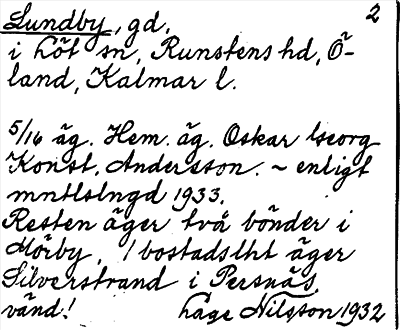 Lundby, gd, 2
i Löt sn, Runstens hd, Ö-
land, Kalmar l.
5/16 äg. Hem. äg. Oskar Georg
Konst. Andersson. ~ enligt
mntlslngd 1933.
Resten äger två bönder i
Mörby. 1 bostadslht äger
Silverstrand i Persnäs.
vänd! Hage Nilsson 1932